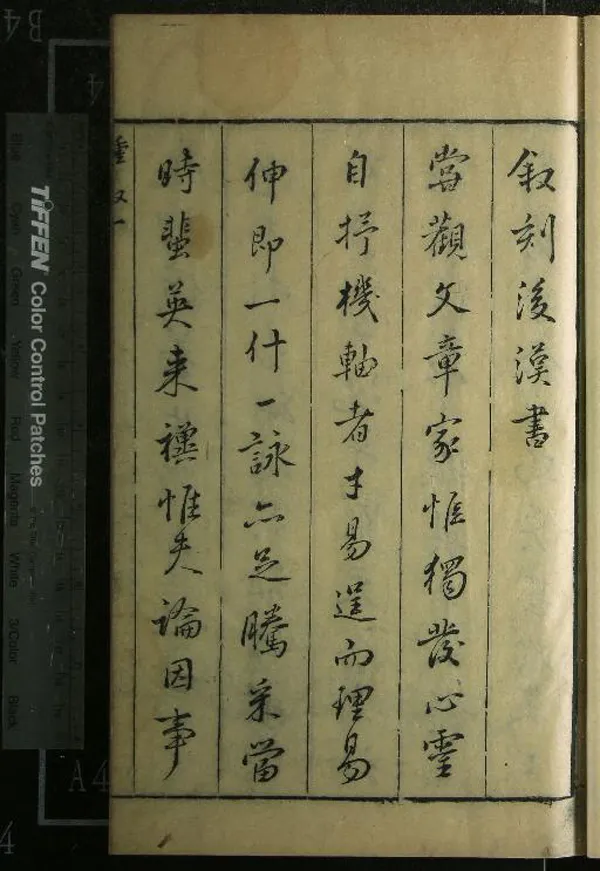 叙刻後漢書
嘗觀文章家惟獨發心靈
自抒機軸者才易逞而理易
伸即一什一詠亦足騰采當
時蜚英来禩惟夫論因事
TIFFEN Color Control Patches
Blue
Cyan
Green
Yellow
Red
Magenta
White
3/Color
Black
B4
A4
4